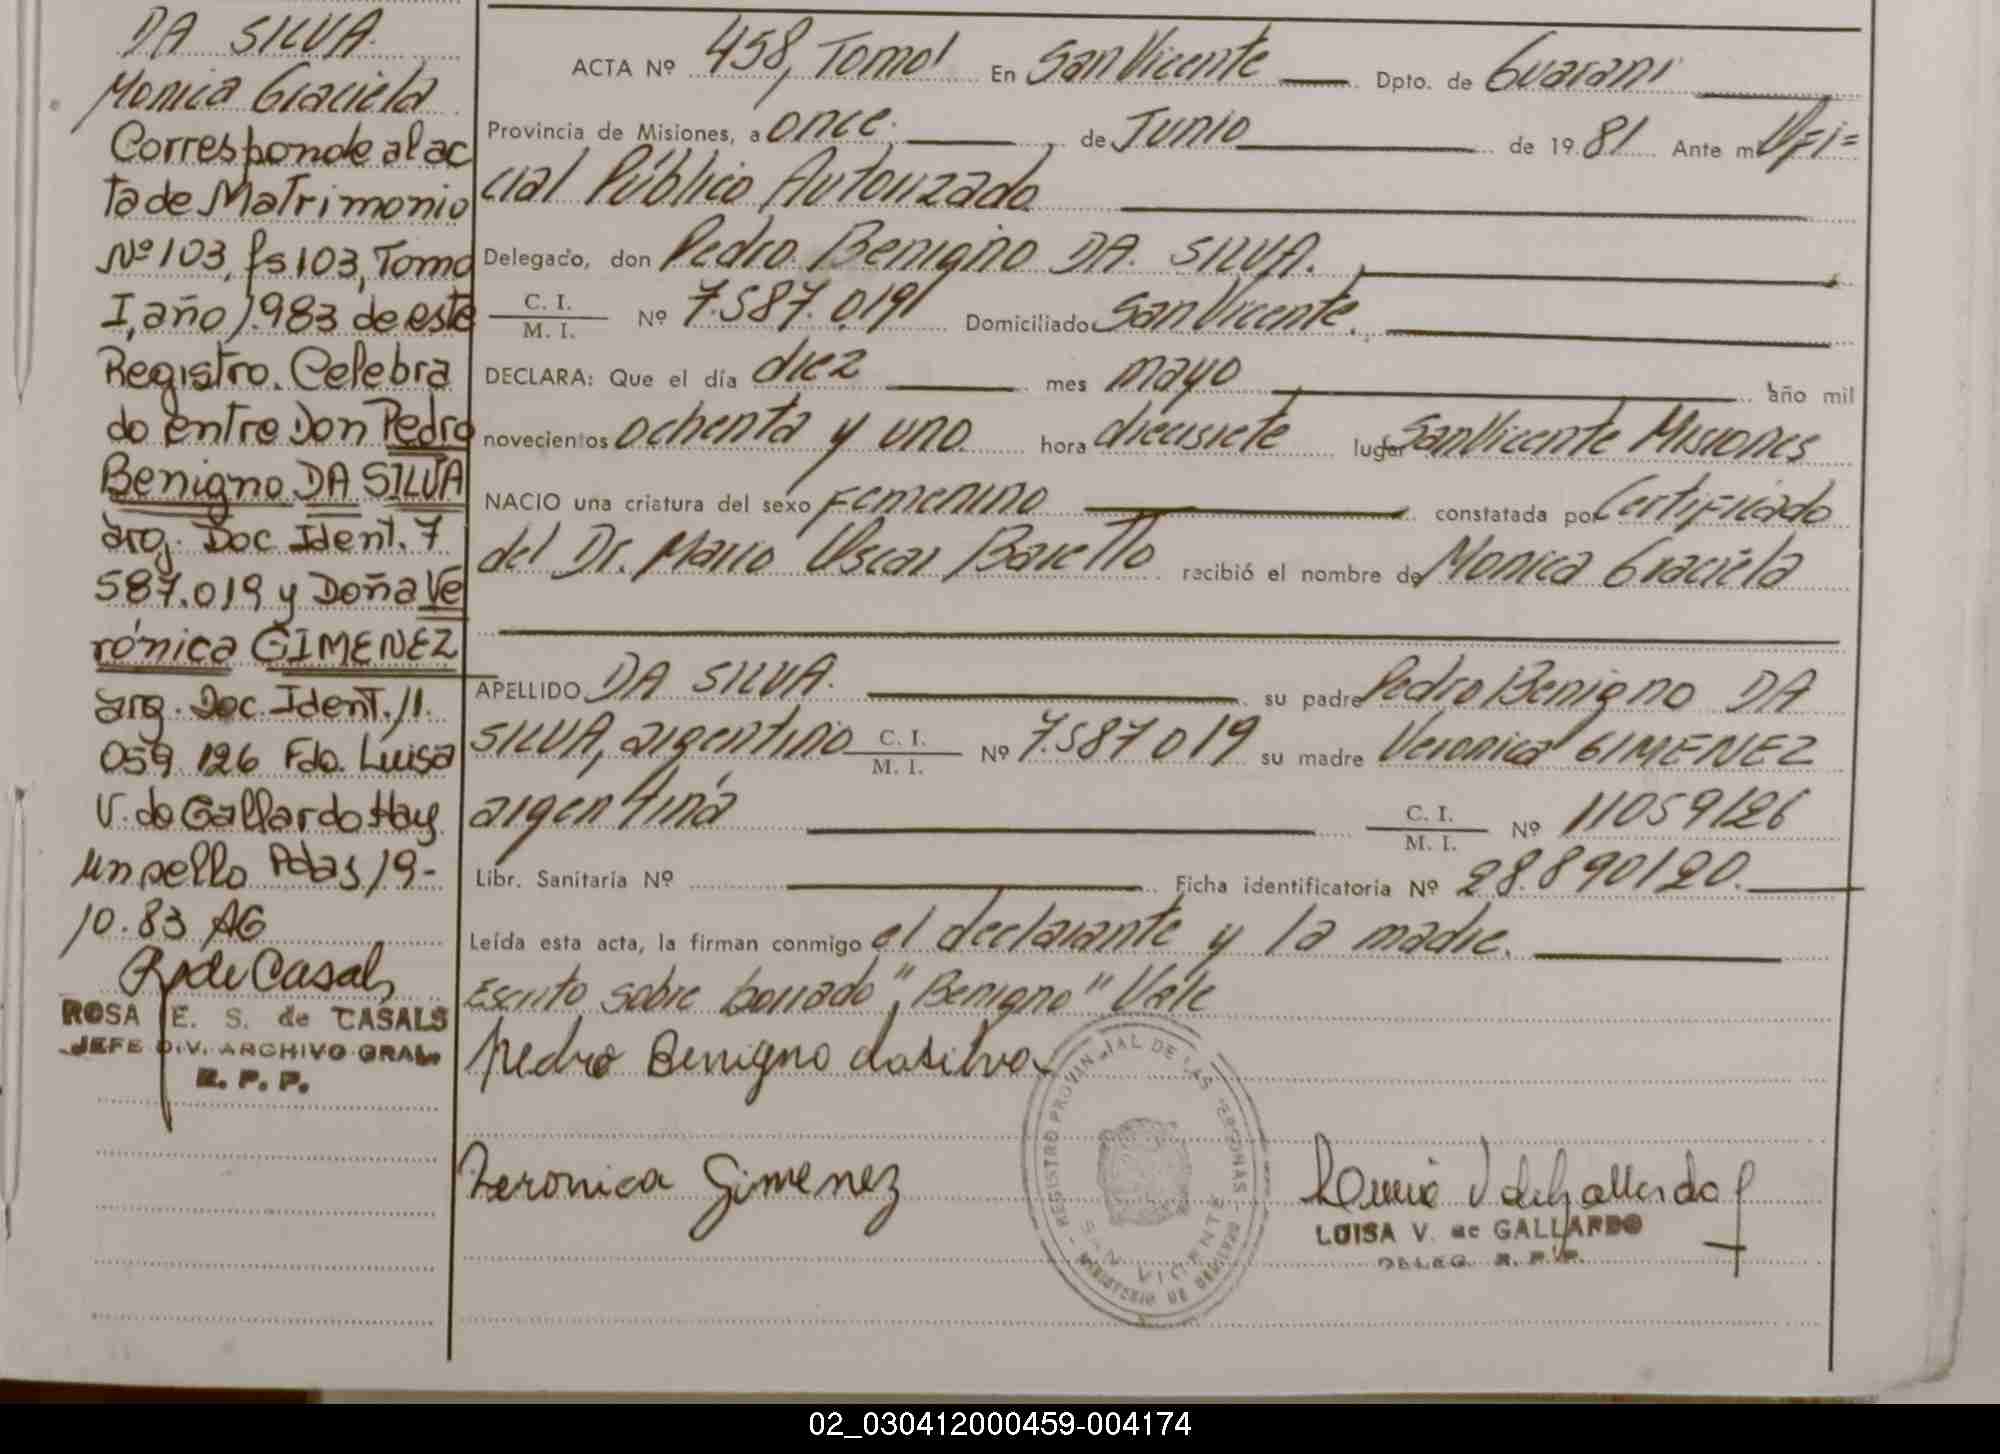 DA SILVA.
Monica Graciela
Corresponde al ac
ta de Matrimonio
Nº 103, fs 103, Tomo
I, año 1.983 de este
Registro. Celebra
do entre Don Pedro
Benigno DA SILVA
arg. Doc Ident. 7
587.019 y Doña Ve
rónica GIMENEZ
arg. Doc. Ident. 11.
059 126 Fdo. Luisa
V. de Gallardo Hay
un sello Pdas 19-
10.83 AG
R de Casals
ROSA E. S. de CASALS
JEFE DIV. ARCHIVO GRAL.
R. P. P.
ACTA Nº 458, Tomo I En San Vicente Dpto. de Guaraní
Provincia de Misiones, a once. de Junio de 1981 Ante mi Ofi=
cial Público Autorizado
Delegado, don Pedro Benigno DA SILVA.
C. I.
M. I. Nº 7.587.019 Domiciliado San Vicente.
DECLARA: Que el día diez mes mayo año mil
novecientos ochenta y uno. hora diecisiete lugar San Vicente Misiones
NACIO una criatura del sexo Femenino constatada por Certificado
del Dr. Mario Oscar Baretto recibió el nombre de Monica Graciela
APELLIDO DA SILVA. su padre Pedro Benigno DA
SILVA, argentino C. I.
M. I. Nº 7.587019 su madre Veronica GIMENEZ
argentina C. I.
M. I. Nº 11059126
Libr. Sanitaria Nº Ficha identificatoria Nº 28.890120.
Leída esta acta, la firman conmigo el declarante y la madre.
Escrito sobre borrado "Benigno" Vale
Pedro Benigno dasilva
Veronica Gimenez
REGISTRO PROVINCIAL DE LAS PERSONAS
SAN VICENTE
MINISTERIO DE GOBIERNO
Luisa V de Gallardo
LUISA V. de GALLARDO
DELEG. R. P. P.
02_030412000459-004174